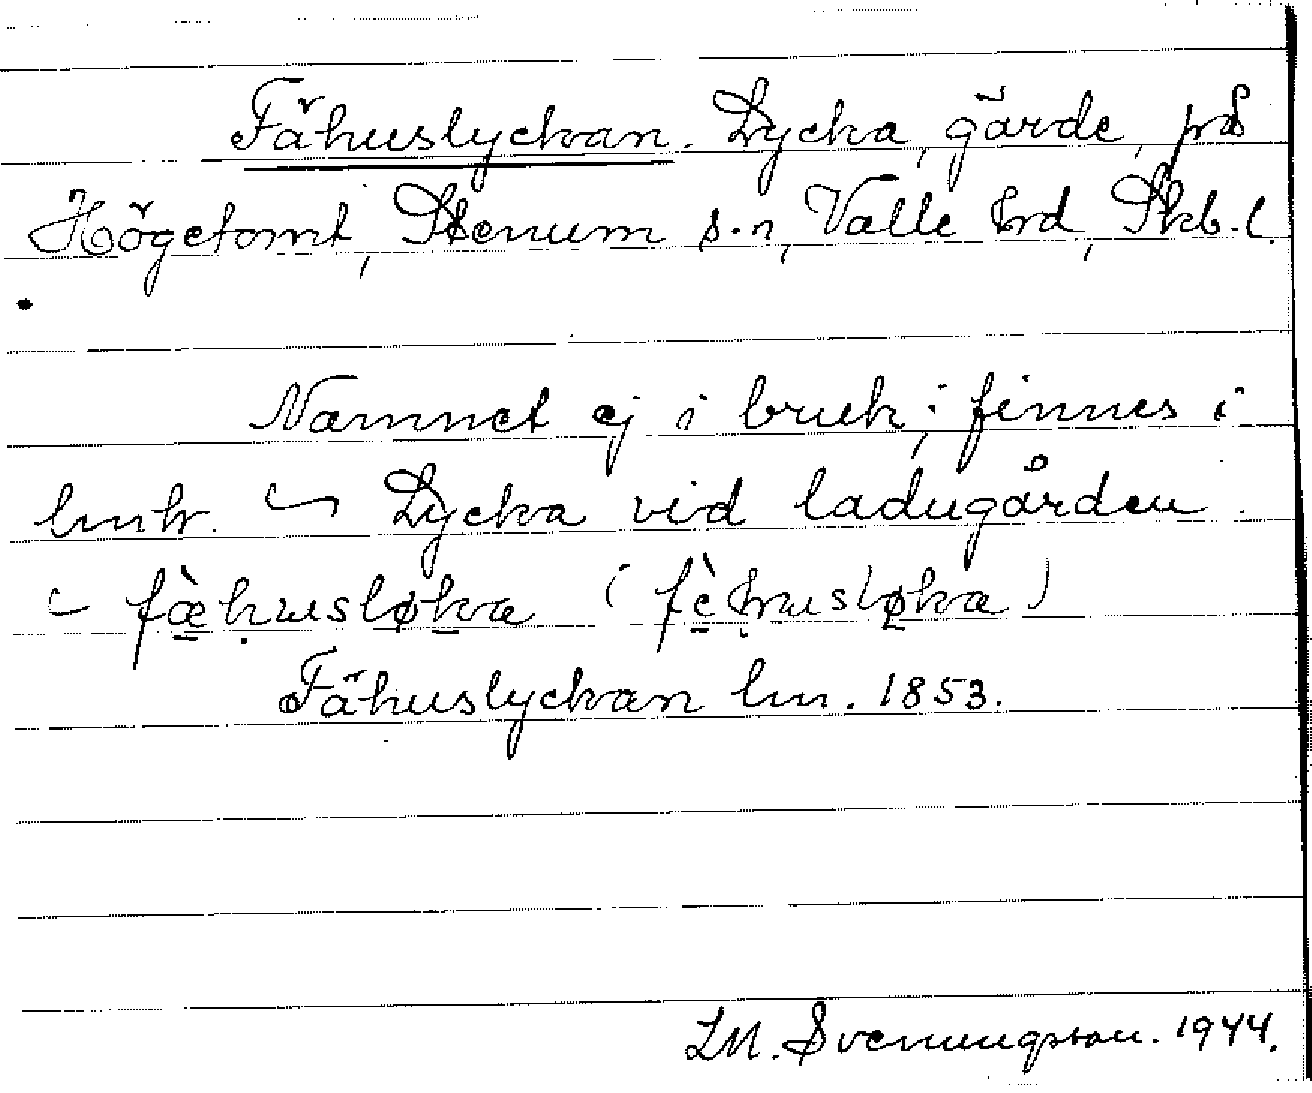 Fähuslyckan. Lycka, gärde, på
Högetomt, Stenum s-n, Valle hrd, Skb. l.
Namnet ej i bruk; finnes i
lmk. Lycka vid ladugården.
fæ̀husløka (fèhusløka)
Fähuslyckan lm. 1853.
LM. Svenungsson. 1944.